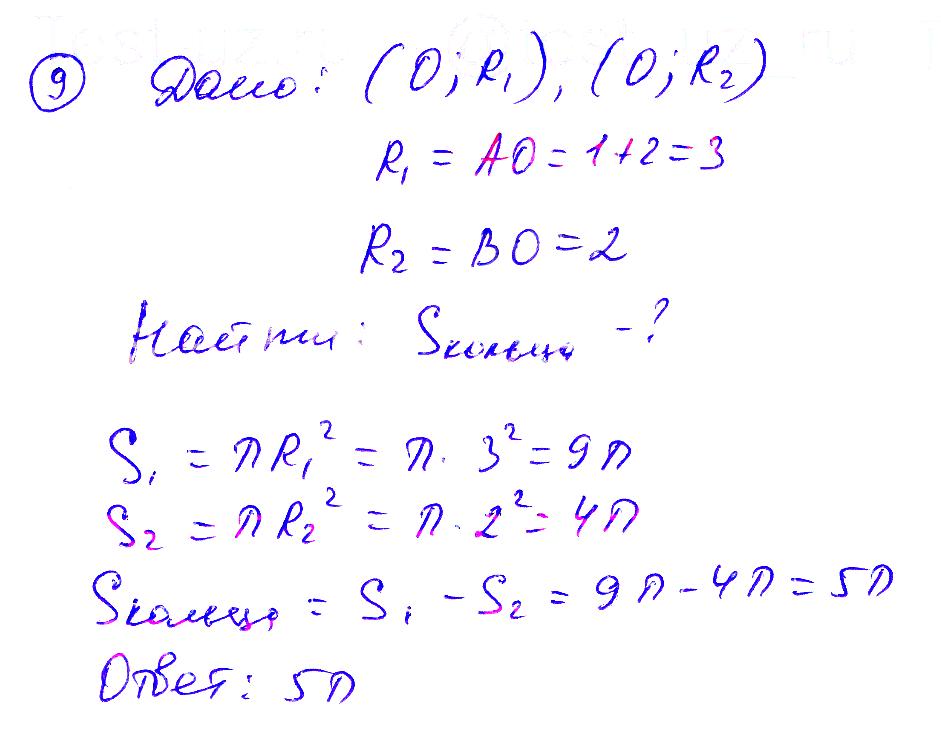 9 Дано: (O; R₁), (O; R₂)
R₁ = AO = 1+2 = 3
R₂ = BO = 2
Найти: Sкольца - ?
S₁ = πR₁² = π · 3² = 9π
S₂ = πR₂² = π · 2² = 4π
Sкольца = S₁ - S₂ = 9π - 4π = 5π
Ответ: 5π